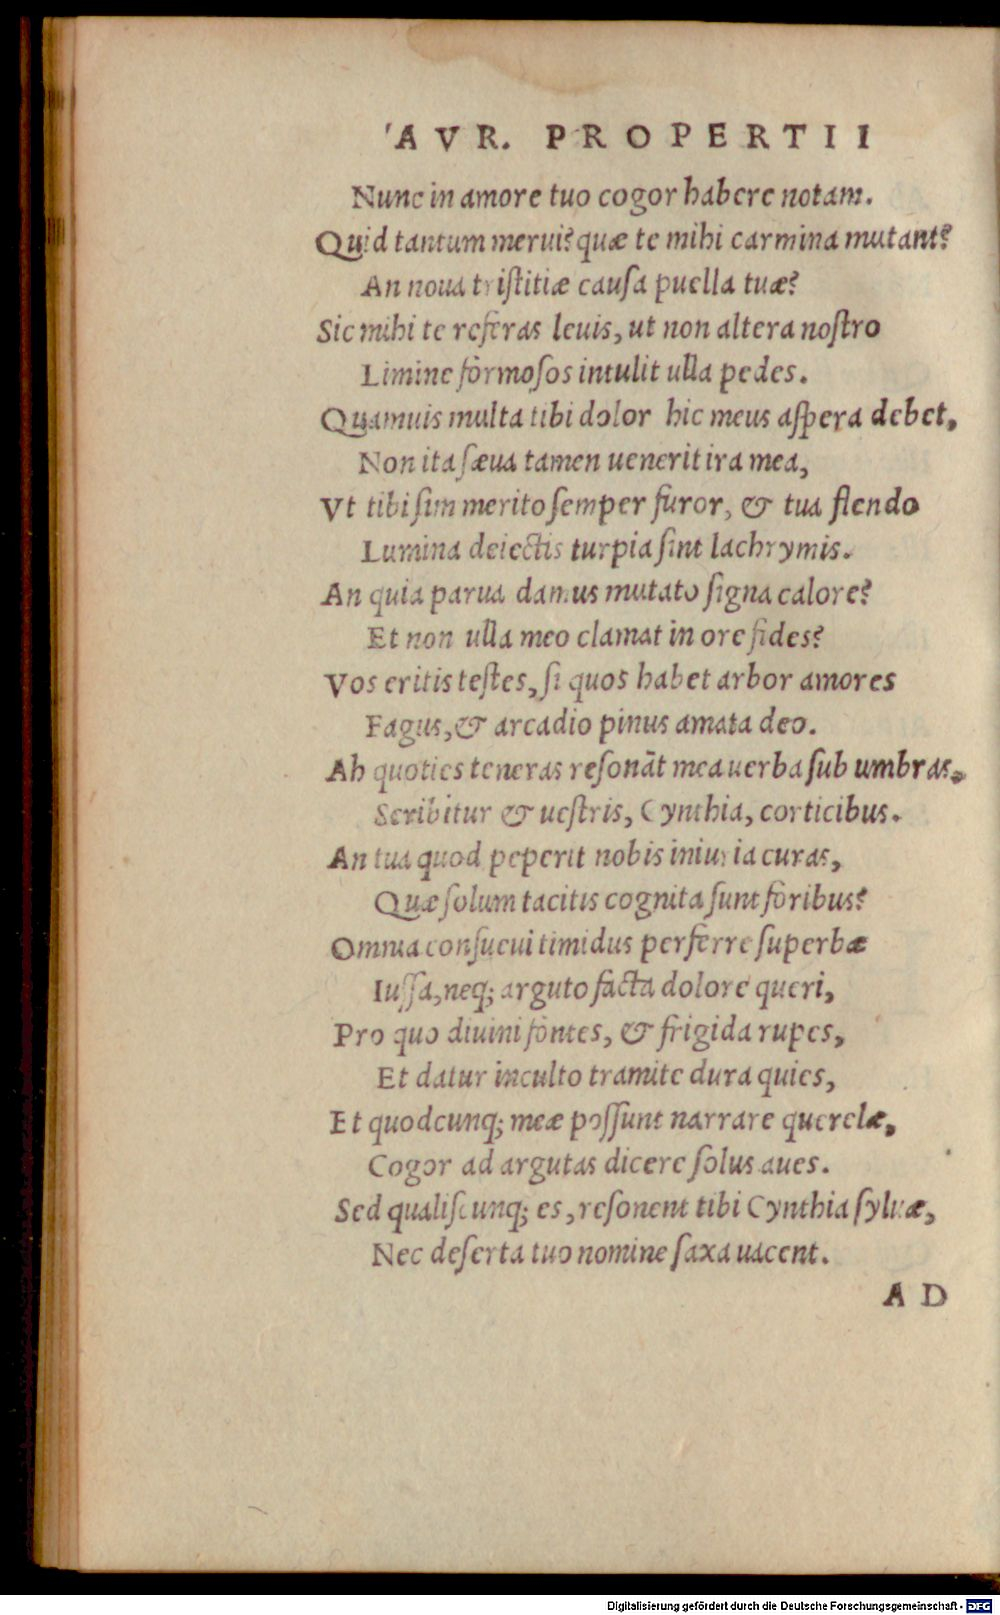 AVR. PROPERTII
Nunc in amore tuo cogor habere notam.
Quid tantum merui? quæ te mihi carmina mutant?
An noua tristitiæ causa puella tuæ?
Sic mihi te referas leuis, ut non altera nostro
Limine formosos intulit ulla pedes.
Quamuis multa tibi dolor hic meus aspera debet,
Non ita sæua tamen uenerit ira mea,
Vt tibi sim merito semper furor, & tua flendo
Lumina deiectis turpia sint lachrymis.
An quia parua damus mutato signa calore?
Et non ulla meo clamat in ore fides?
Vos eritis testes, si quos habet arbor amores
Fagus, & arcadio pinus amata deo.
Ah quoties teneras resonāt mea uerba sub umbras,
Scribitur & uestris, Cynthia, corticibus.
An tua quod peperit nobis iniuria curas,
Quæ solum tacitis cognita sunt foribus?
Omnia consueui timidus perferre superbæ
Iussa, neq; arguto facta dolore queri,
Pro quo diuini fontes, & frigida rupes,
Et datur inculto tramite dura quies,
Et quodcunq; meæ possunt narrare querelæ,
Cogor ad argutas dicere solus aues.
Sed qualiscunq; es, resonent tibi Cynthia syluæ,
Nec deserta tuo nomine saxa uacent.
AD
Digitalisierung gefördert durch die Deutsche Forschungsgemeinschaft - DFG